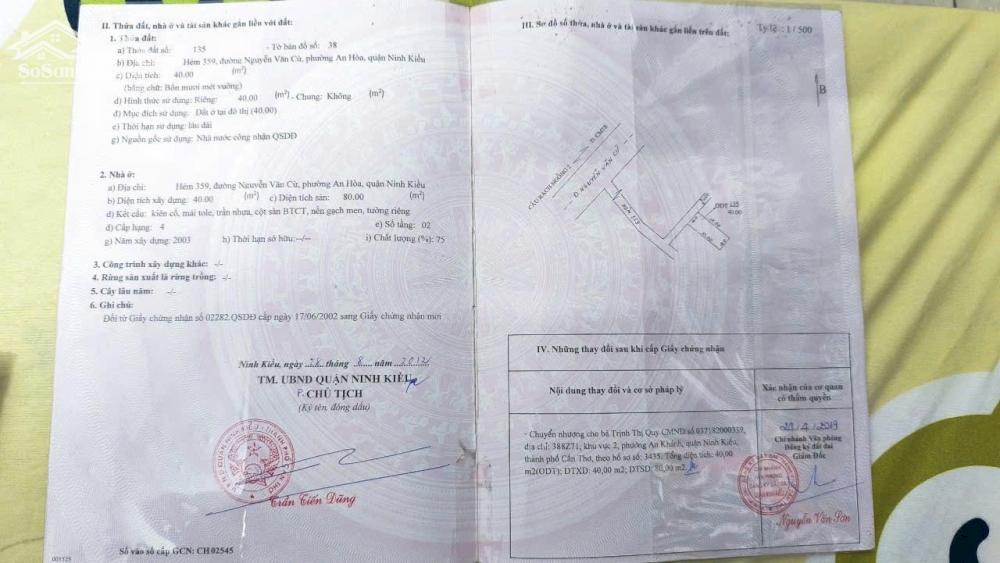 SoSan
II. Thửa đất, nhà ở và tài sản khác gắn liền với đất:
1. Thửa đất:
a) Thửa đất số: 135 - Tờ bản đồ số: 38
b) Địa chỉ: Hẻm 359, đường Nguyễn Văn Cừ, phường An Hòa, quận Ninh Kiều
c) Diện tích: 40.00 (m²)
(bằng chữ: Bốn mươi mét vuông)
d) Hình thức sử dụng: Riêng: 40.00 (m²) - Chung: Không (m²)
đ) Mục đích sử dụng: Đất ở tại đô thị (40.00)
e) Thời hạn sử dụng: lâu dài
g) Nguồn gốc sử dụng: Nhà nước công nhận QSDĐ
2. Nhà ở:
a) Địa chỉ: Hẻm 359, đường Nguyễn Văn Cừ, phường An Hòa, quận Ninh Kiều
b) Diện tích xây dựng: 40.00 (m²) c) Diện tích sàn: 80.00 (m²)
d) Kết cấu: kiên cố, mái tole, trần nhựa, cột sàn BTCT, nền gạch men, tường riêng
đ) Cấp hạng: 4 e) Số tầng: 02
g) Năm xây dựng: 2003 h) Thời hạn sở hữu: --/-- i) Chất lượng (%): 75
3. Công trình xây dựng khác: -/-
4. Rừng sản xuất là rừng trồng: -/-
5. Cây lâu năm: -/-
6. Ghi chú:
Đổi từ Giấy chứng nhận số 02282.QSDĐ cấp ngày 17/06/2002 sang Giấy chứng nhận mới
Ninh Kiều, ngày 28 tháng 8 năm 2012
TM. UBND QUẬN NINH KIỀU
P. CHỦ TỊCH
(Ký tên, đóng dấu)
Trần Tiến Dũng
Số vào sổ cấp GCN: CH 02545
001125
III. Sơ đồ thửa, nhà ở và tài sản khác gắn liền trên đất:
Tỷ lệ: 1/500
B
CẦU RẠCH NGỖNG 1
Đ. NGUYỄN VĂN CỪ
135
40.00
IV. Những thay đổi sau khi cấp Giấy chứng nhận
Nội dung thay đổi và cơ sở pháp lý
Xác nhận của cơ quan
có thẩm quyền
- Chuyển nhượng cho bà Trịnh Thị Quy CMND số 037182000359,
địa chỉ: 388Z71, khu vực 2, phường An Khánh, quận Ninh Kiều,
thành phố Cần Thơ, theo hồ sơ số: 3435. Tổng diện tích: 40,00
m2(ODT); DTXD: 40,00 m2; DTSD: 80,00 m2.
29/4/2019
Chi nhánh Văn phòng
Đăng ký đất đai
Giám Đốc
Nguyễn Văn Sơn